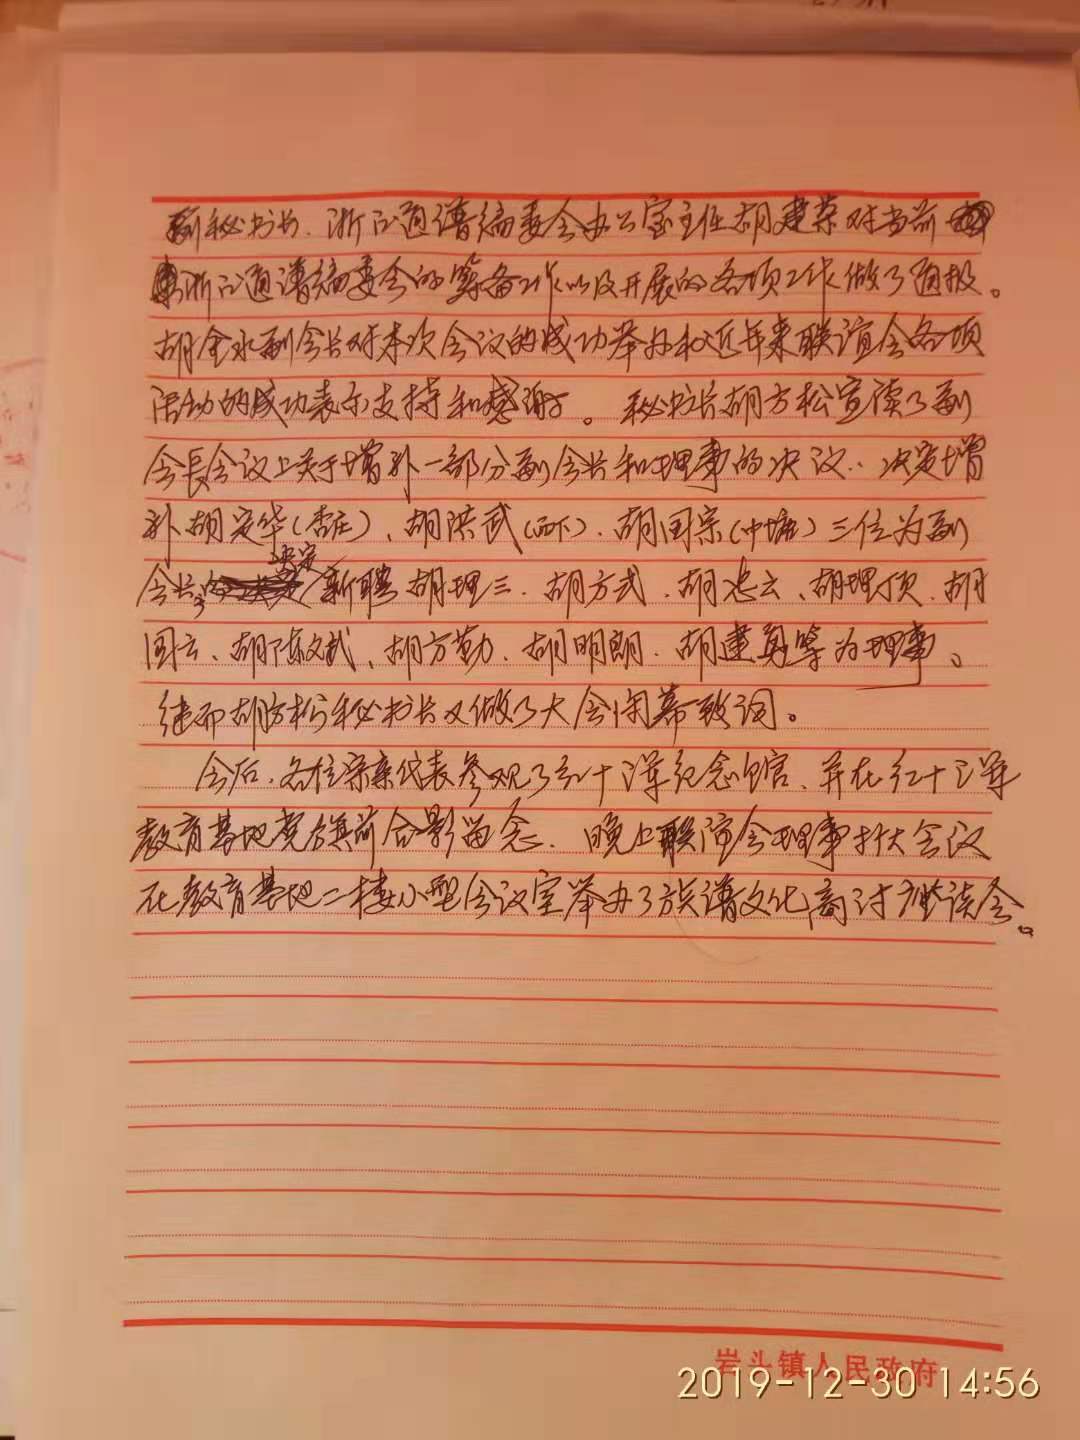 副秘书长、浙江通谱编委会办公室主任胡建荣对当前
浙江通谱编委会的筹备工作以及开展的各项工作做了通报。
胡金永副会长对本次会议的成功举办和近年来联谊会各项
活动的成功表示支持和感谢。秘书长胡方松宣读了副
会長会议上关于增补一部分副会长和理事的决议:决定增
补胡定华(杏庄)、胡洪武(西下)、胡国宗(中塘)三位为副
决定
会长,新聘胡理三、胡方式、胡忠云、胡理顶、胡
国云、胡陈斌、胡方勤、胡明朗、胡建勇等为理事。
继而胡方松秘书长又做了大会闭幕致词。
会后、各位宗亲代表参观了红十三军纪念馆、并在红十三军
教育基地党旗前合影留念、晚上联谊会理事扩大会议
在教育基地二楼小型会议室举办了族谱文化商讨座谈会。
岩头镇人民政府
2019-12-30 14:56